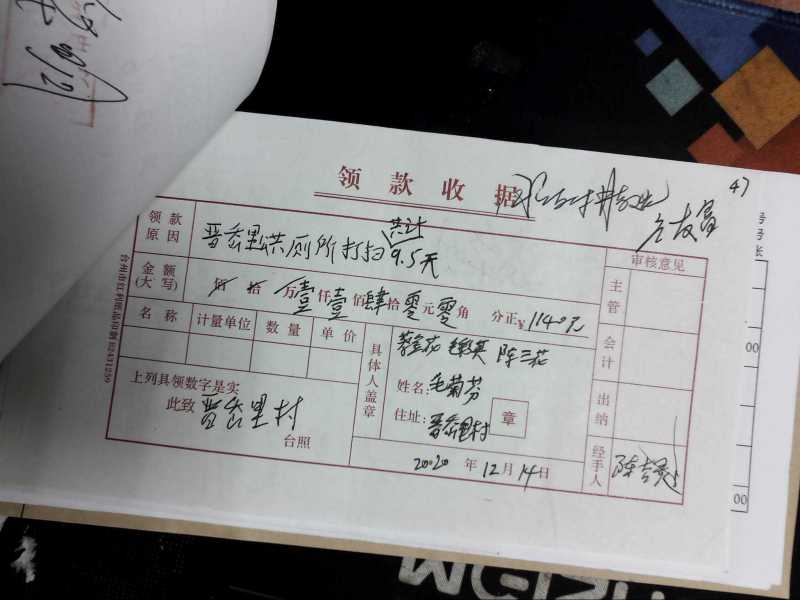 47
领款收据
领款原因 晋岙里洪厕所打扫 共计 9.5天
审核意见
金额(大写) 佰 拾 万壹仟壹佰肆拾零元零角 分正¥1140元
主管
名称 计量单位 数量 单价
具体人盖章
陈三花
会计
上列具领数字是实
姓名:毛菊芬
此致 晋岙里村
台照
住址:晋岙里村
章
出纳
2020年12月14日
经手人
台州市红利纸品印刷 82431259
号
号
张
00
00